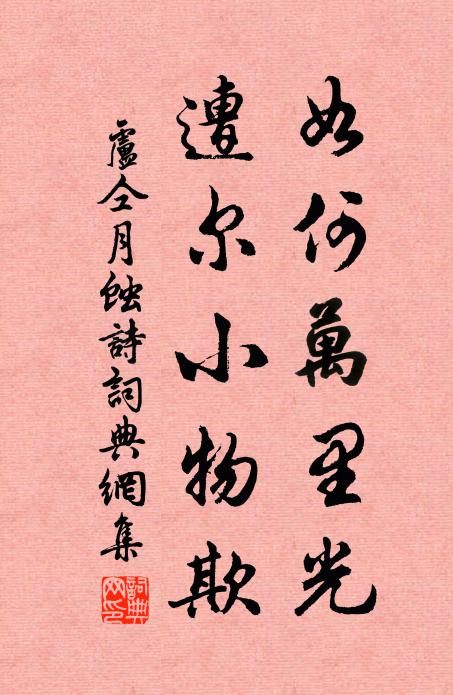 如何萬里光
遭尔小物欺
盧仝月蝕詩詞典網集
詞典網印